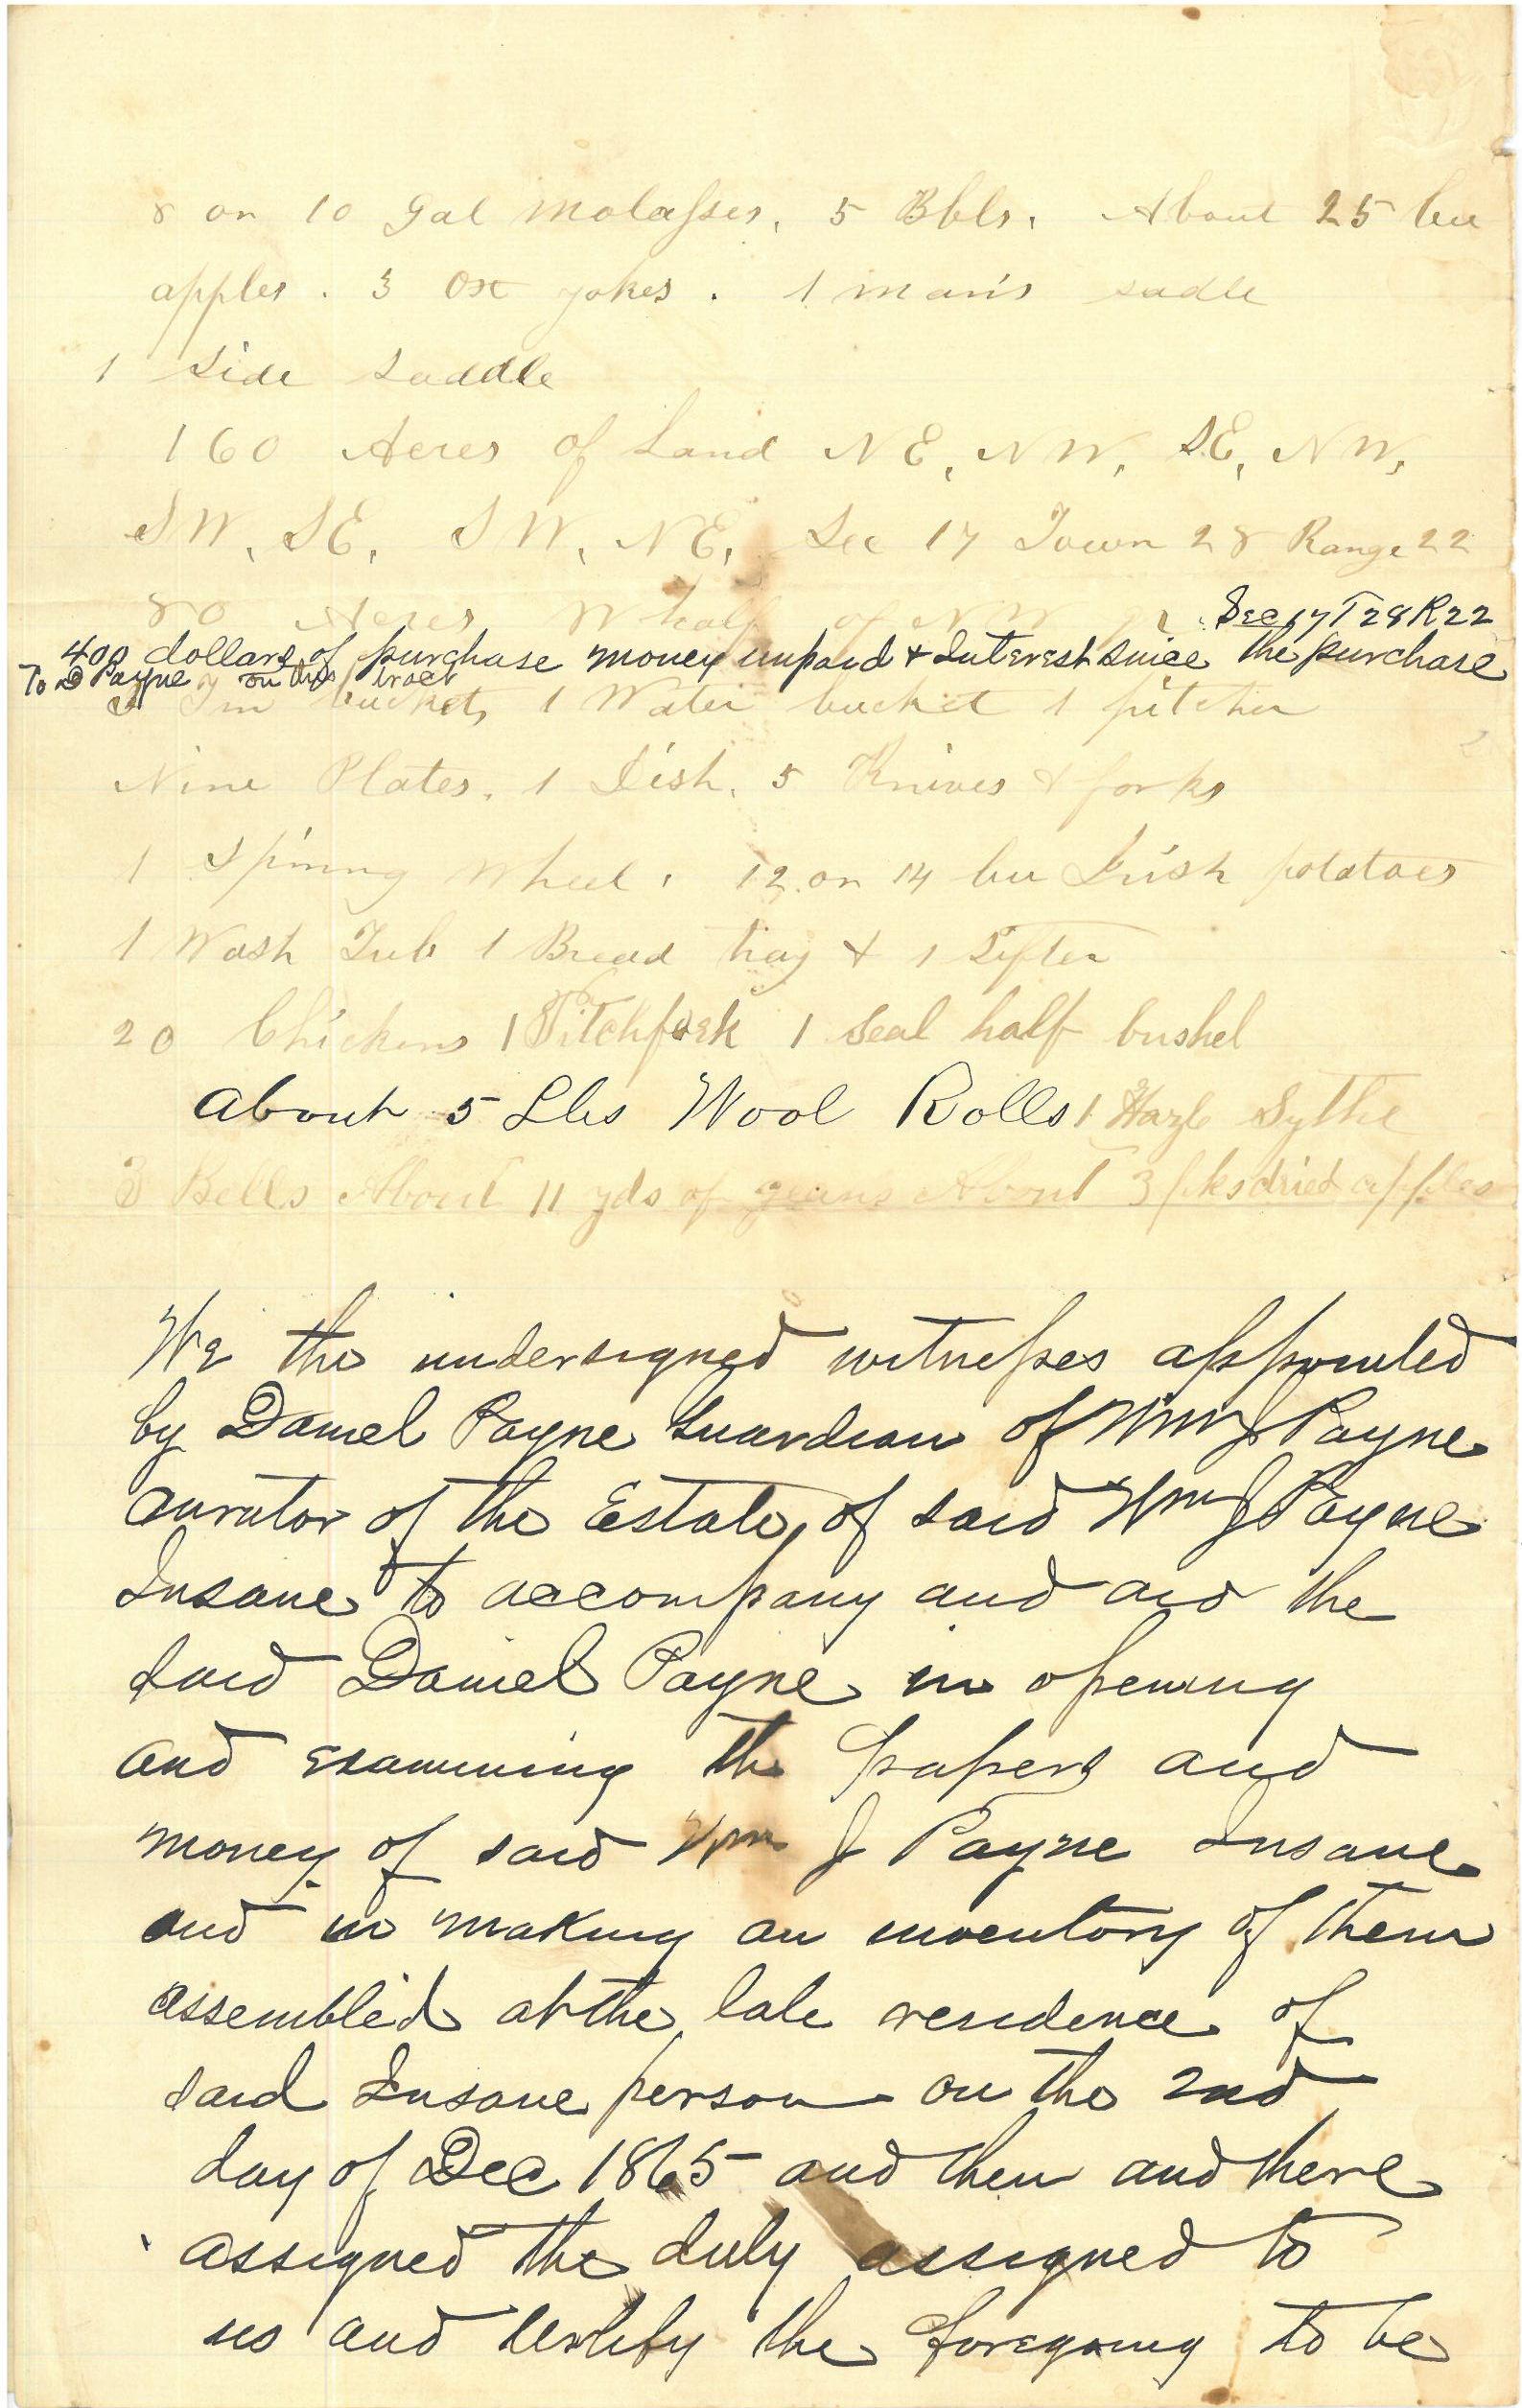 8 or 10 Gal Molasses, 5 Bbls, About 25 bu
apples. 3 Ox yokes. 1 man's sadle
1 Side Saddle
160 Acres of Land NE, NW, SE, NW,
SW, SE, SW, NE, Sec 17 Town 28 Range 22
80 Acres W half of NW qr Sec 17 T 28 R 22
400 dollars of purchase money unpaid & Interest since the purchase
To D Payne on this tract
Tin buckets 1 Water bucket 1 pitcher
Nine Plates, 1 Dish, 5 Knives & forks
1 Spining Wheel, 12 or 14 bu Irish potatoes
1 Wash Tub 1 Bread tray & 1 Sifter
20 Chickens 1 Pitchfork 1 Seal half bushel
About 5 Lbs Wool Rolls 1 Sythe
3 Bells About 11 yds of geans About 3 pks dried apples
We the undersigned witnesses appointed
by Daniel Payne Guardian of Wm J Payne
curator of the Estate, of said Wm J Payne
Insane to accompany and aid the
said Daniel Payne in opening
and examining the papers and
money of said Wm J Payne Insane
and in making an inventory of them
assembled at the late residence of
said Insane person on the 2nd
day of Dec 1865 and then and there
assigned the duty assigned to
us and certify the foregoing to be